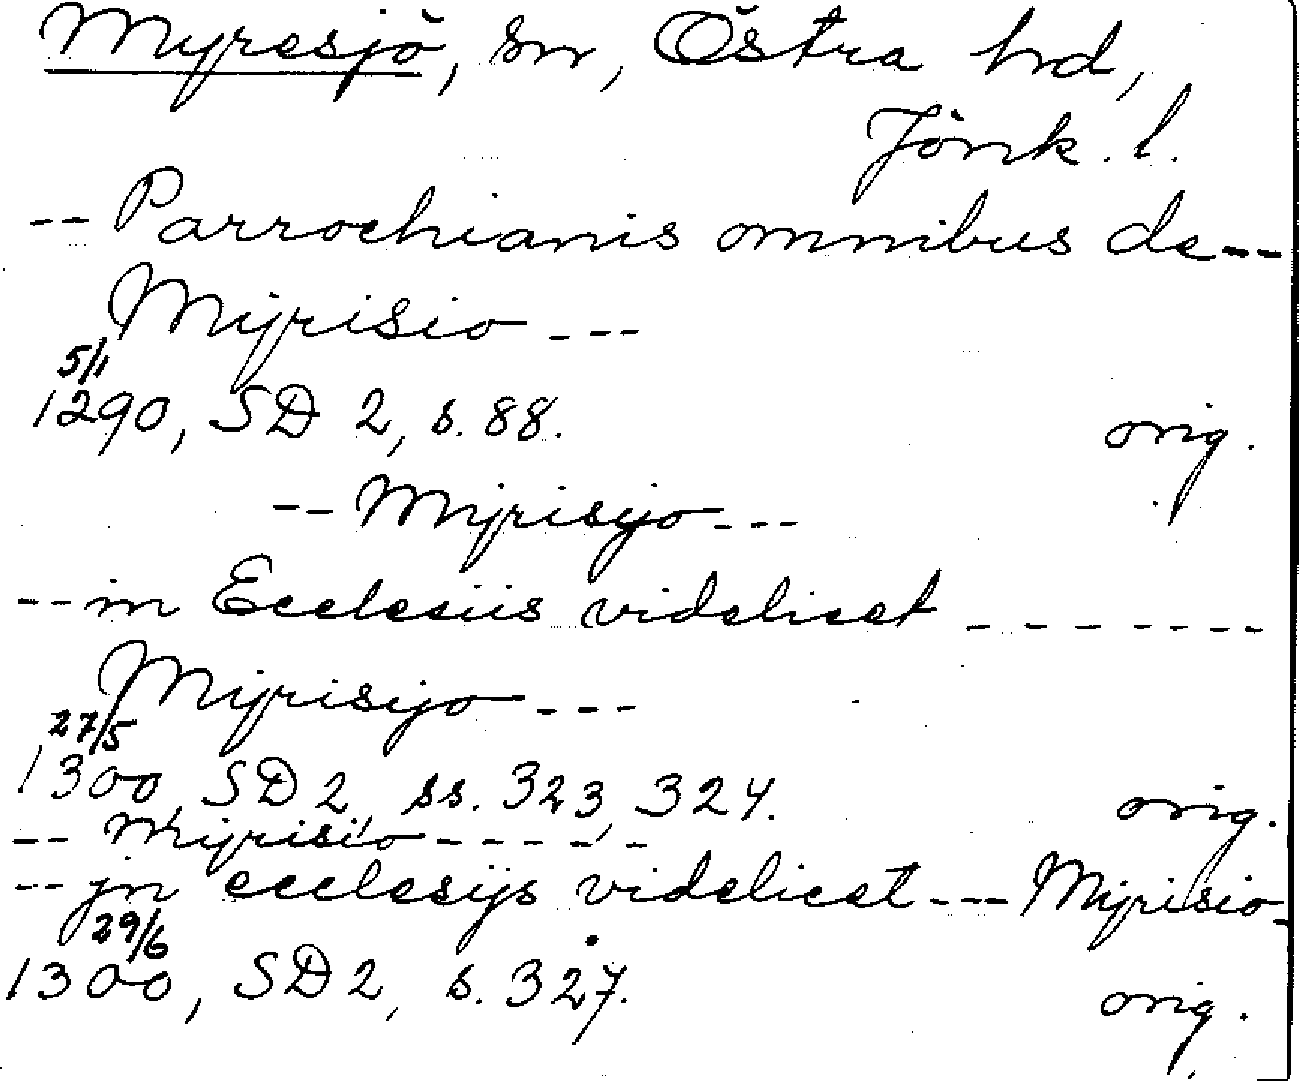 Myresjö, sn, Östra hd,
Jönk. l.
-- Parrochianis omnibus de --
Mijrisio ---
5/1
1290, SD 2, s. 88. orig.
-- Mijrisijo ---
-- in Ecclesiis videlicet -------
Mijrisijo ---
27/5
1300, SD 2, ss. 323, 324. orig.
-- Mijrisio ------
-- jn ecclesijs videlicet --- Mijrisio-
29/6
1300, SD 2, s. 327. orig.